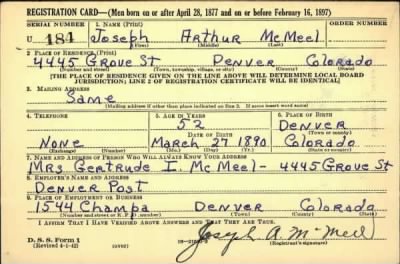 REGISTRATION CARD—(Men born on or after April 28, 1877 and on or before February 16, 1897)
SERIAL NUMBER 1. NAME (Print) ORDER NUMBER
U 184 Joseph Arthur McMeel
(First) (Middle) (Last)
2. PLACE OF RESIDENCE (Print)
4445 Grove St Denver Colorado
(Number and street) (Town, township, village, or city) (County) (State)
[THE PLACE OF RESIDENCE GIVEN ON THE LINE ABOVE WILL DETERMINE LOCAL BOARD
JURISDICTION; LINE 2 OF REGISTRATION CERTIFICATE WILL BE IDENTICAL]
3. MAILING ADDRESS
Same
[Mailing address if other than place indicated on line 2. If same insert word same]
4. TELEPHONE 5. AGE IN YEARS 6. PLACE OF BIRTH
52 Denver
DATE OF BIRTH (Town or county)
None March 27 1890 Colorado
(Exchange) (Number) (Mo.) (Day) (Yr.) (State or country)
7. NAME AND ADDRESS OF PERSON WHO WILL ALWAYS KNOW YOUR ADDRESS
Mrs Gertrude I. McMeel- 4445 Grove St
8. EMPLOYER'S NAME AND ADDRESS
Denver Post
9. PLACE OF EMPLOYMENT OR BUSINESS
1544 Champa Denver Colorado
(Number and street or R. F. D. number) (Town) (County) (State)
I AFFIRM THAT I HAVE VERIFIED ABOVE ANSWERS AND THAT THEY ARE TRUE.
D. S. S. Form 1
(Revised 4-1-42) (over) Joseph A. McMeel
(Registrant's signature)